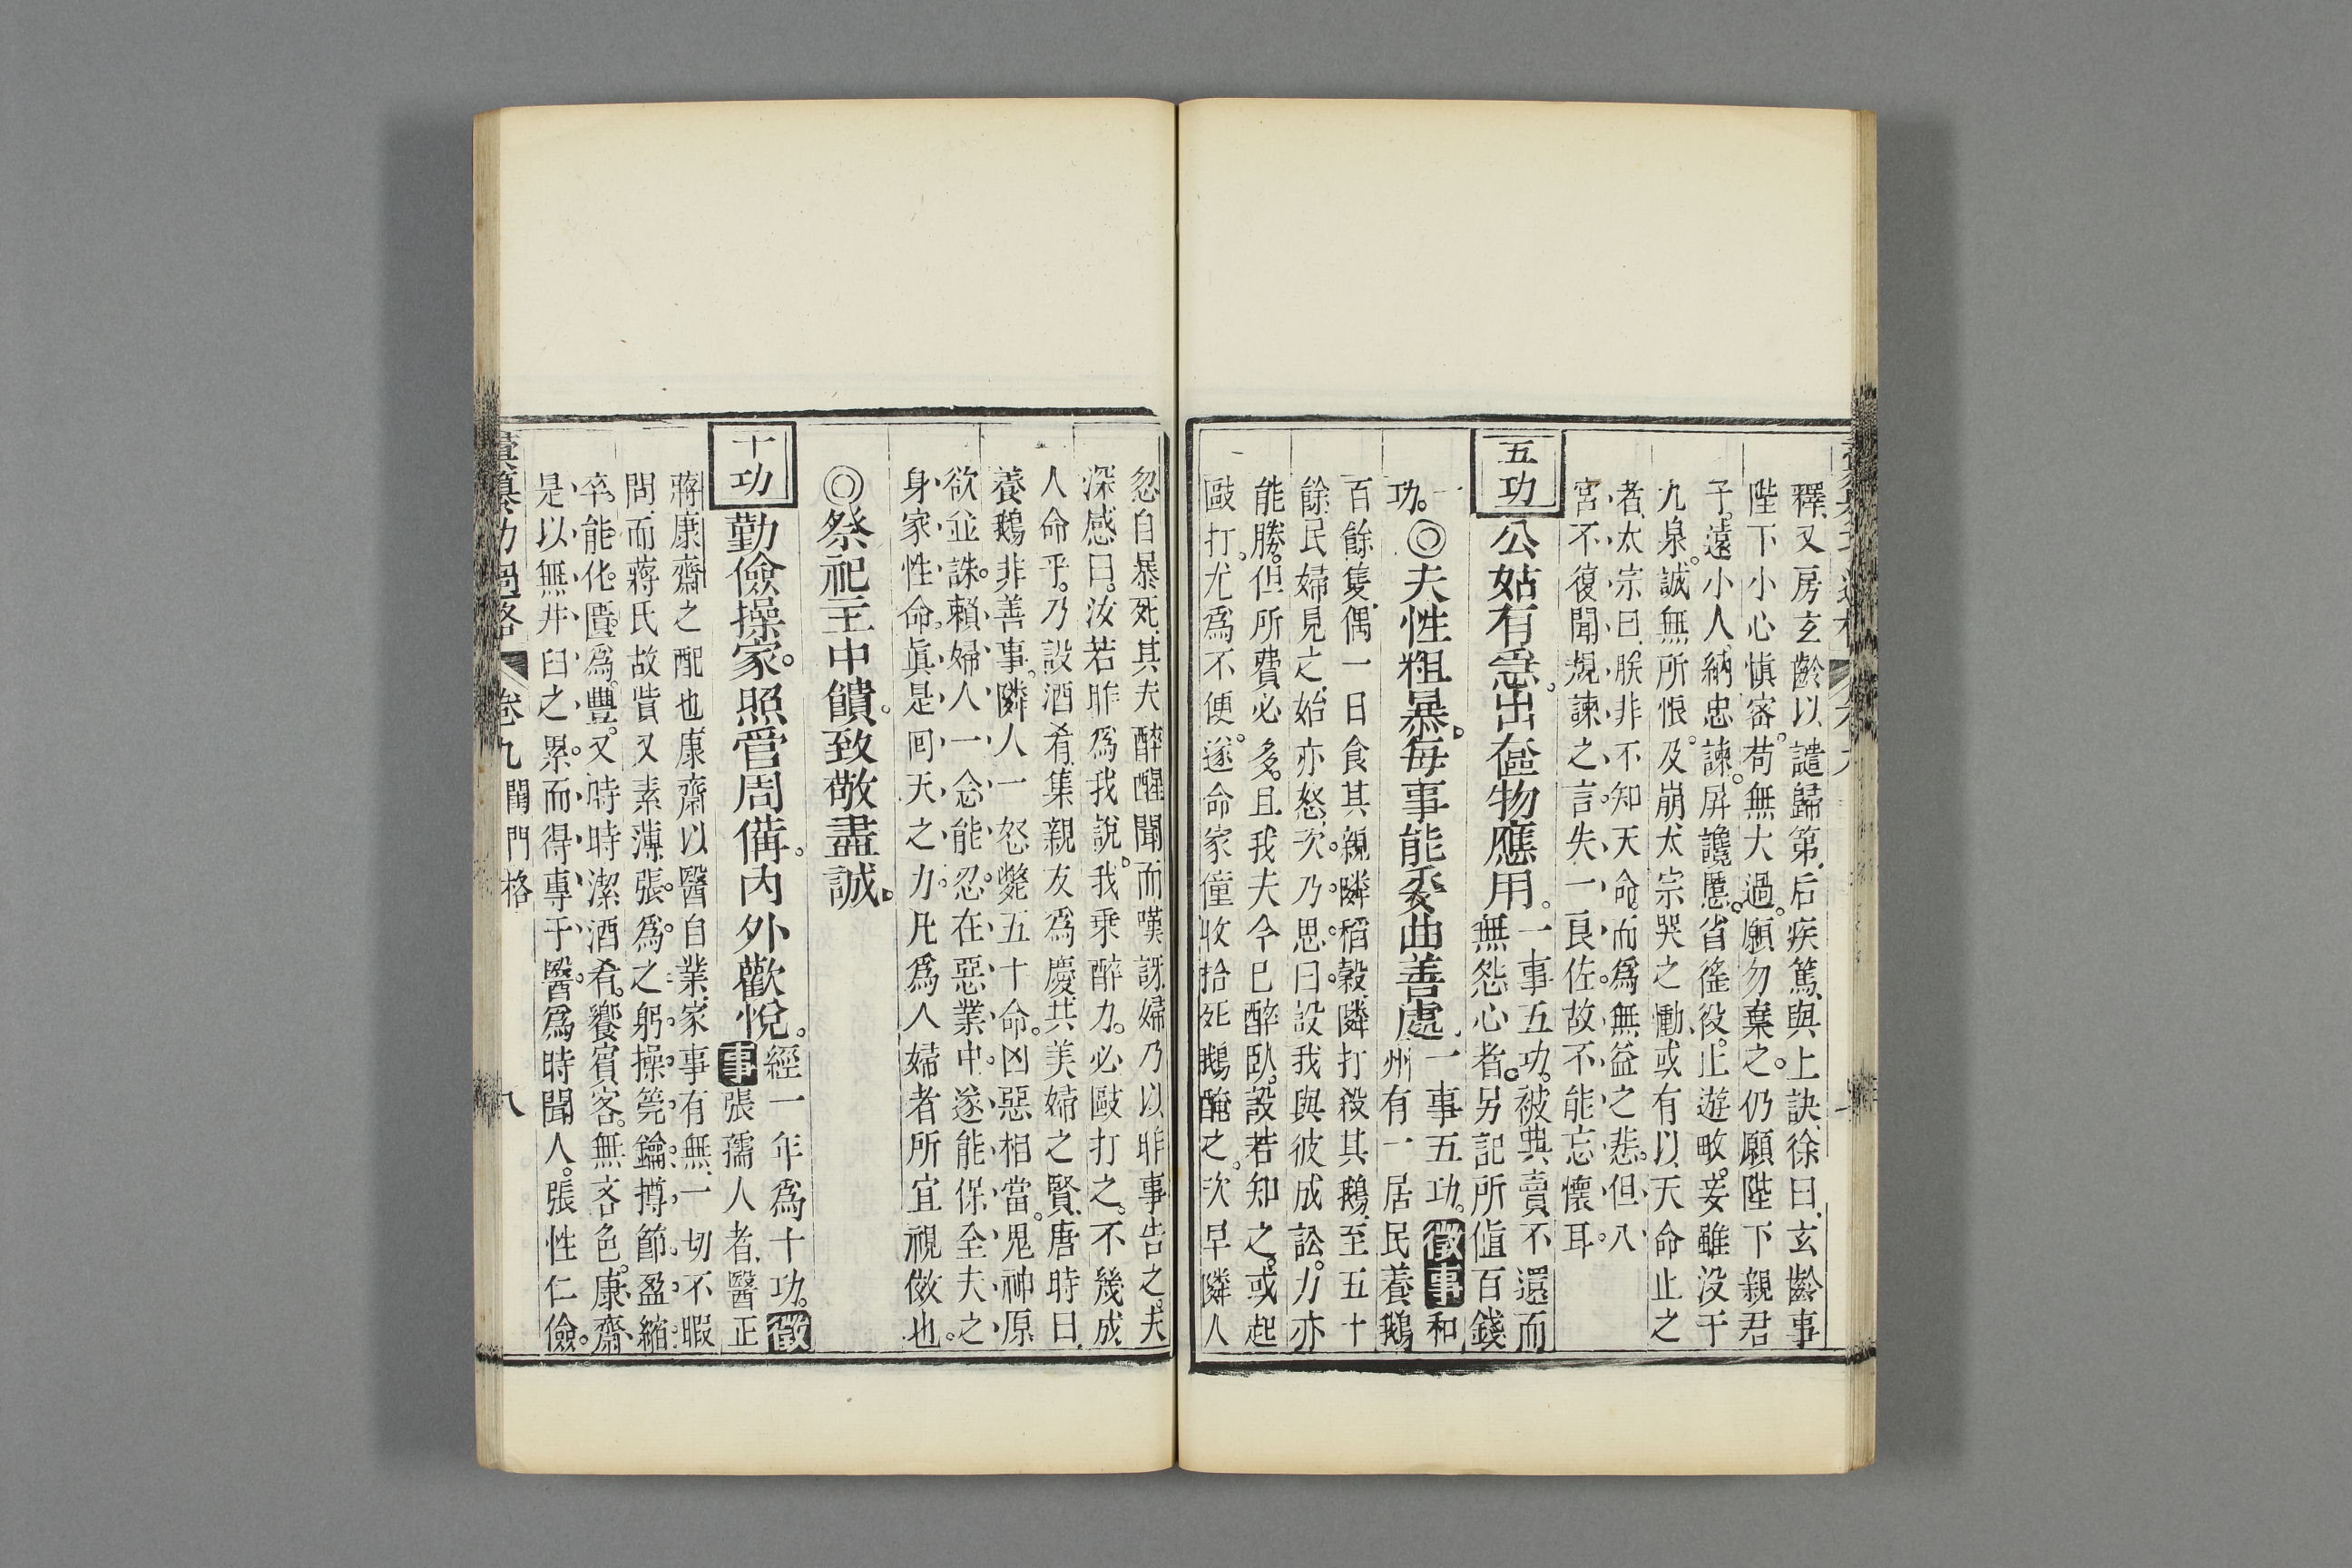 釋又房玄齡以譴歸第后疾篤與上訣徐曰玄齡事
陛下小心慎密苟無大過願勿棄之仍願陛下親君
子遠小人納忠諫屏讒慝省徭役止遊畋妾雖沒于
九泉誠無所恨及崩太宗哭之慟或有以天命止之
者太宗曰朕非不知天命而爲無益之悲但入
宮不復聞規諫之言失一良佐故不能忘懷耳
五功
公姑有急出奩物應用
一事五功被典賣不還而
無怨心者另記所值百錢
一功
◎夫性粗暴每事能委曲善處
一事五功徵事和
州有一居民養鵝
百餘隻偶一日食其親隣稻穀隣打殺其鵝至五十
餘民婦見之始亦怒次乃思曰設我與彼成訟力亦
能勝但所費必多且我夫今已醉臥設若知之或起
毆打尤爲不便遂命家僮收拾死鵝醃之次早隣人
忽自暴死其夫醉醒聞而嘆訝婦乃以昨事告之夫
深感曰汝若昨爲我說我乘醉力必毆打之不幾成
人命乎乃設酒肴集親友爲慶共美婦之賢唐時曰
養鵝非善事隣人一怒斃五十命凶惡相當鬼神原
欲並誅賴婦人一念能忍在惡業中遂能保全夫之
身家性命眞是囘天之力凡爲人婦者所宜視傚也
◎祭祀主中饋致敬盡誠
十功
勤儉操家照管周備內外歡悅
經一年爲十功徵
事張孺人者醫正
蔣康齋之配也康齋以醫自業家事有無一切不暇
問而蔣氏故貲又素薄張爲之躬操筦鑰撙節盈縮
卒能化匱爲豐又時時潔酒肴饗賓客無吝色康齋
是以無井臼之累而得專于醫爲時聞人張性仁儉
功過格
卷九閨門格
八